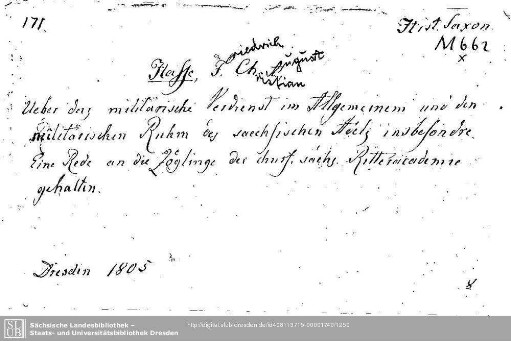 171.
Hist. Saxon.
M 662
x
Hasse, F. Ch.
riedrich
ristian
August
Ueber das militärische Verdienst im Allgemeinem und den
militärischen Ruhm des saechsischen Adels insbesondre.
Eine Rede an die Zöglinge der churf. sächs. Ritteracademie
gehalten.
Dresden 1805
Sächsische Landesbibliothek –
Staats- und Universitätsbibliothek Dresden